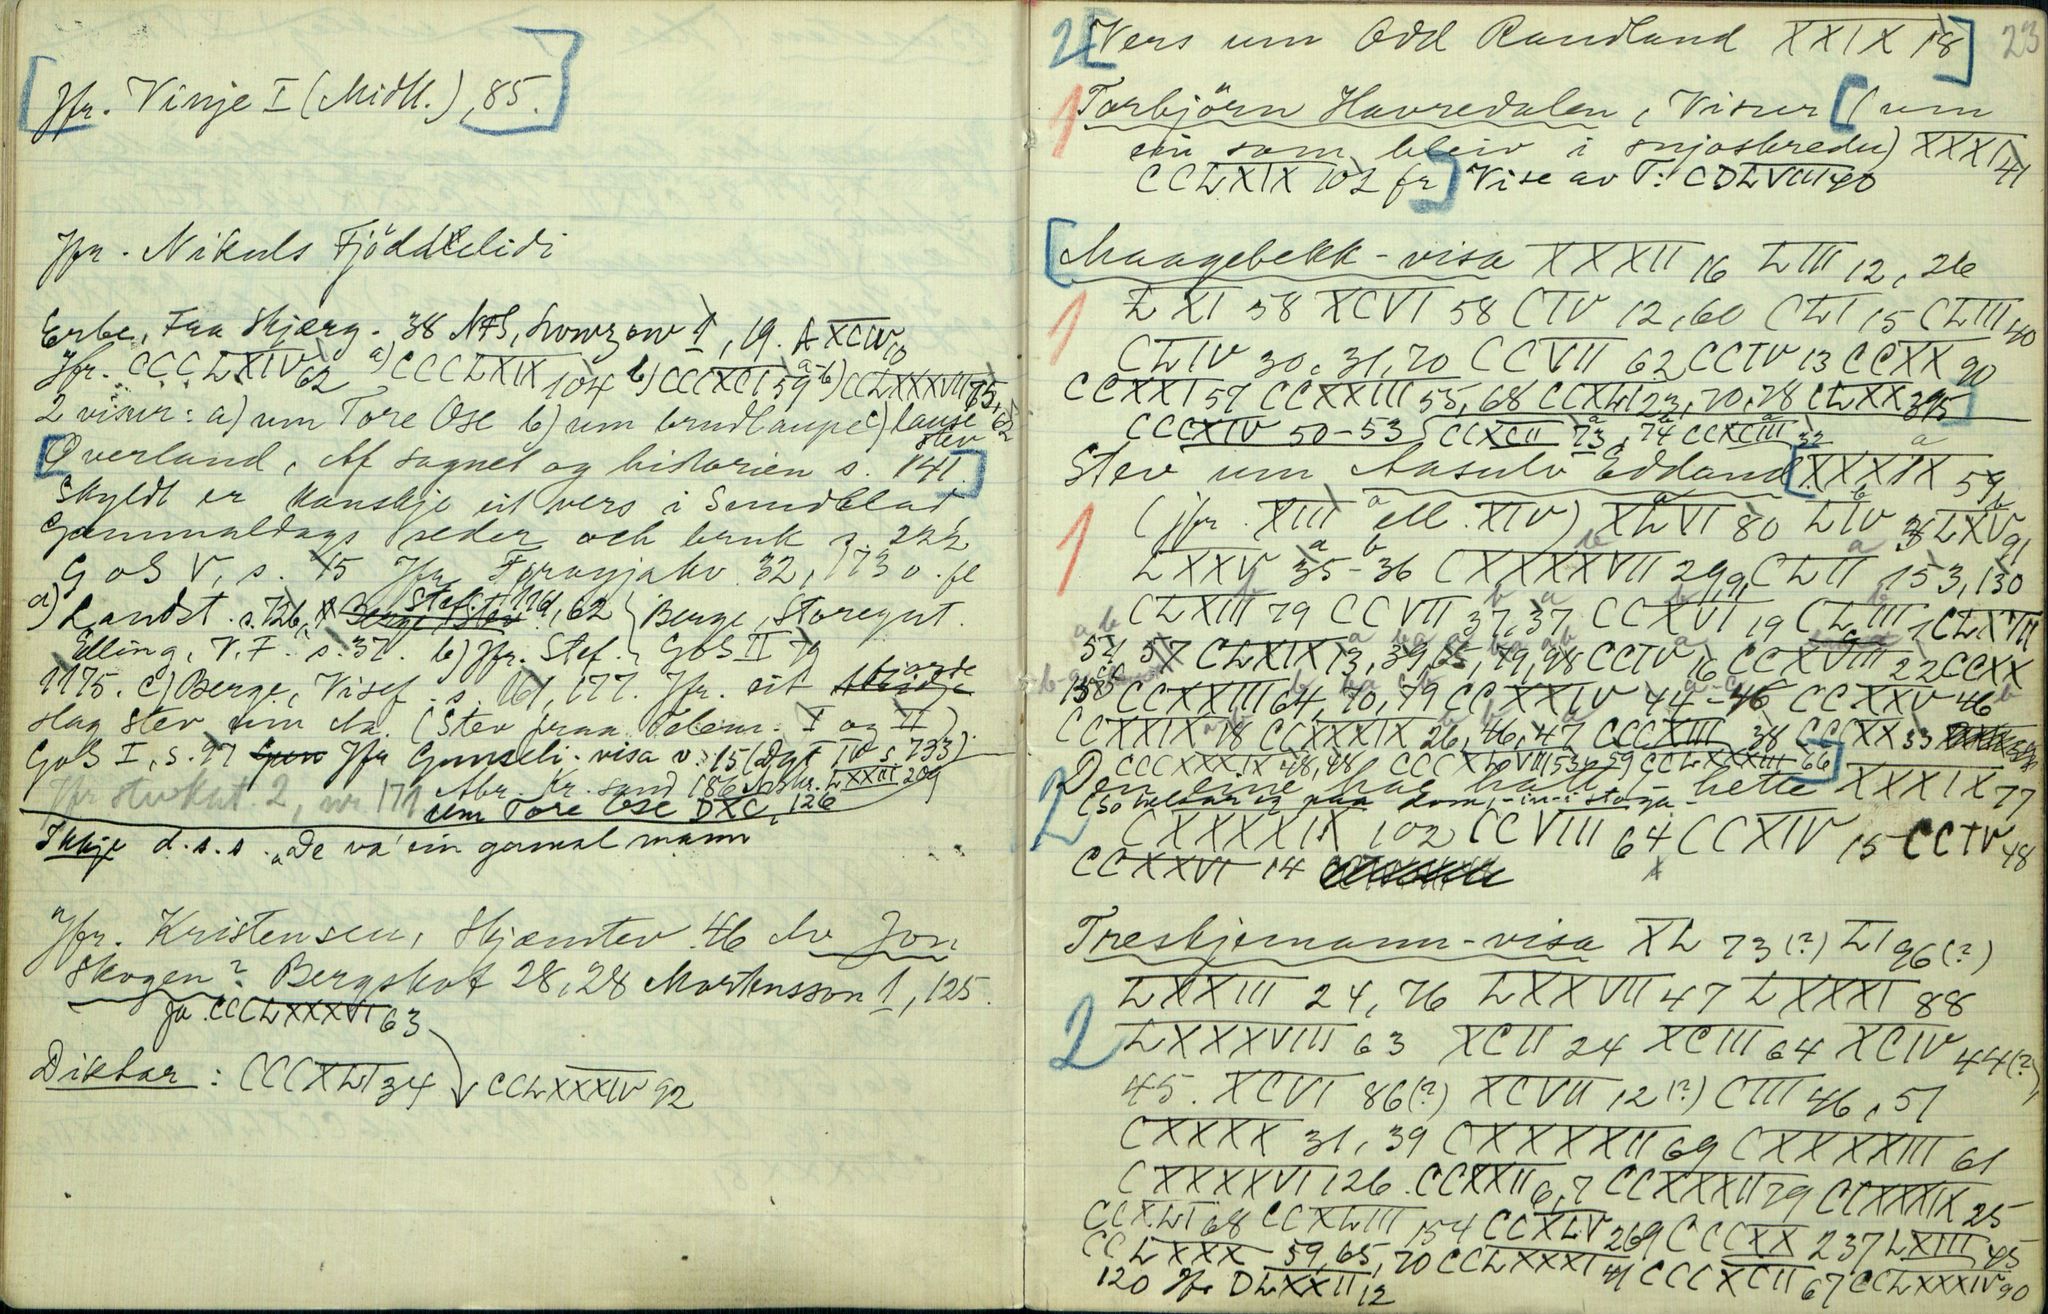 [Jfr. Vinje I (Midtl.), 85.]
Jfr. Nikuls Fjöddelidi
Erbe, Fraa Skjerg. 38 NFS, 1, 19. A XCIV 10
Jfr. CCCLXIV 62 a) CCCLXIX 104 b) CCCXCI 59 a-b) CCLXXXVII 75, 62
2 visur: a) um Tore Ose b) um brudlaupe c) lause stev
[Overland, Af sagnet og historien s. 141.]
Skyldt er kanskje eit vers i Sundblad
Gammaldags seder och bruk s. 222
GoS V, s. 15 Jfr. 32, 173 o. fl
a) Landst. s. 726, Stef. 116, 62 } Berge, Storegut.
Elling, V. F. s. 37. b) Jfr. Stef. GoS II 79
1175. c) Berge, Visef. s. 161, 177. Jfr. eit
slag stev um Aa. (Stev fraa Telem. I og II).
GoS I, s. 97 Jfr Gunseli-visa v. 15 (Dgt IV s. 733)
Jfr stevkat. 2, nr. 171 LXXIII 209
um Tore Ose DXC, 126
Ikkje d.s.s. "De va' ein gamal mann
Jfr. Kristensen, Skjæmtev. 46 Av Jon
Skogen? Bergskot 28, 28 Mortensson 1, 125.
Ja CCCLXXXVI 63
Diktar: CCCXLI 34 CCLXXXIV 92
2 [Vers um Odd Randland XXIX 18] 23
1 Torbjörn Havredalen, Visur [(um
ein som bleiv i snjoskreda) XXXI 41
CCLXIX 102 fr] Vise av T: CDLVIII 40
[Maagebekk-visa XXXII 16 LIII 12, 26
1 LXI 38 XCVI 58 CIV 12, 60 CLI 15 CLIII 40
CLIV 30, 31, 70 CCVII 62 CCIV 13 CCXX 90
CCXXI 57 CCXXIII 55, 68 CCXLI 23, 70, 78 CLXX 395]
CCCXIV 50-53 CCXCII 73, 74 CCXCIII 32
Stev um Aasulv Eddland [XXXIX 59
1 (jfr. XIII a ell. XIV) XLVI 80 LIV 36 LXV 91
LXXV 35-36 CXXXXVII 29, 9, CLII 153, 130
CLXIII 79 CCVII 37, 37 CCXVI 19 CLIII 1 CLXVII
52, 57 CLXIX 13, 39, 65, 79, 98 CCIV 16 CCXVIII 22 CCXX
158 CCXXIII 64, 70, 79 CCXXIV 44-46 CCXXV 46
CCXXIX 18 CCXXXIX 26, 46, 47 CCCXIII 38 CCCXX 33
CCCXXXIX 48, 48 CCCXLVIII 53, 59 CCLXXXIII 66]
2 Den eine han hatt - hette XXXIX 77
CXXXXIX 102 CCVIII 64 CCXIV 15 CCIV 48
CCXXVI 14
Treskjemann-visa XL 73(?) LI 96(?)
LXXIII 24, 76 LXXVII 47 LXXXI 88
2 LXXXVIII 63 XCII 24 XCIII 64 XCIV 44(?),
45. XCVI 86(?) XCVII 12(?) CIII 46, 51
CXXXX 31, 39 CXXXXII 69 CXXXXIII 61
CXXXXVI 126. CCXXII 6, 7 CCXXXII 79 CCXXXIX 25
CCXLI 68 CCXLIII 154 CCXLV 269 CCCXX 237 LXIII 45
CCLXXX 59, 65, 70 CCLXXXI 41 CCCXCII 67 CCLXXXIV 90
120 Jfr DLXXII 12